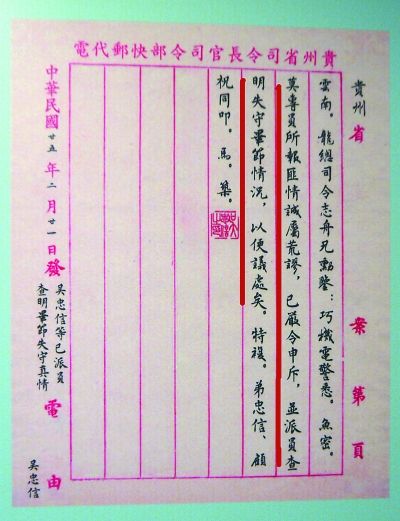 貴州省司令長官司令部快郵代電
貴州省 案第頁
雲南。龍總司令志舟兄勳鑒：巧機電警悉。魚密。
莫專員所報匪情誠屬荒謬，已嚴令申斥，並派員查
明失守畢節情況，以便議處矣。特複。弟忠信、顧
祝同叩。馬。築。
中華民國廿五年二月廿一日發 電 由
吳忠信等已派員
查明畢節失守真情
吳忠信